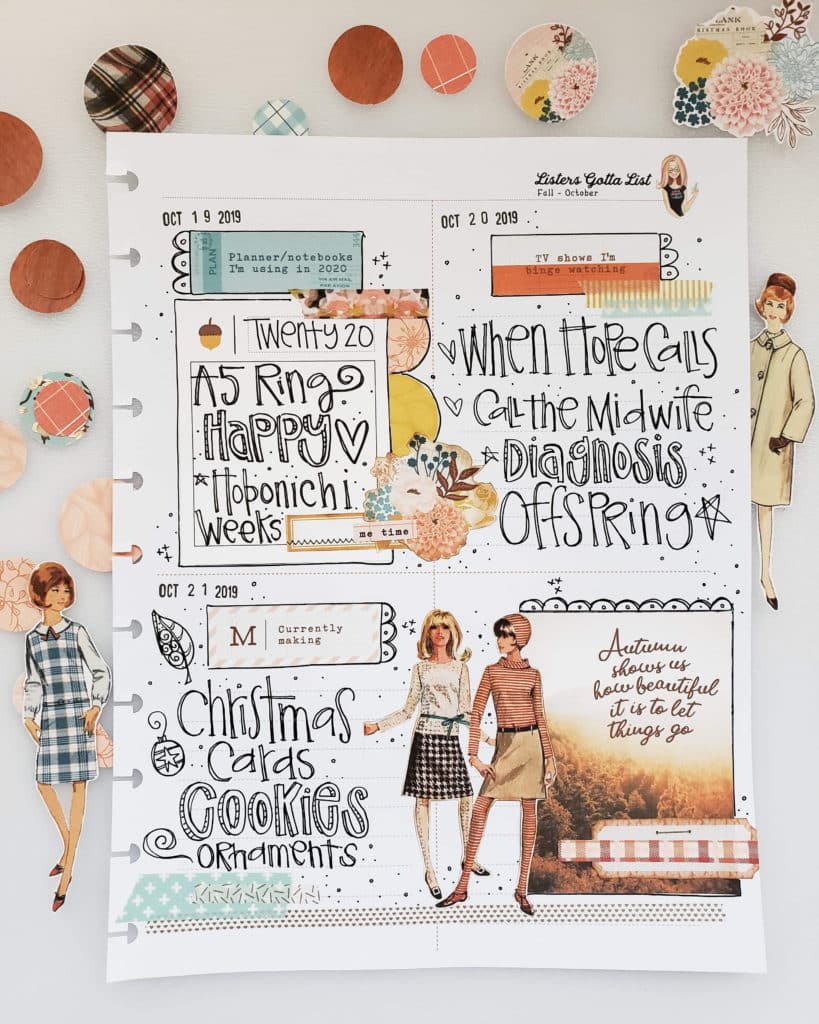 LANK
RISTMAS BOOK
Listers Gotta List
Fall - October
OCT 19 2019
PLAN
Planner/notebooks
I'm using in 2020
VIA AIR MAIL
PAR AVION
Twenty 20
A5 Ring
Happy
Hobonichi
Weeks
me time
OCT 20 2019
TV shows I'm
binge watching
When Hope Calls
Call the Midwife
Diagnosis
Offspring
OCT 21 2019
M Currently
making
Christmas
Cards
Cookies
Ornaments
Autumn
shows us
how beautiful
it is to let
things go